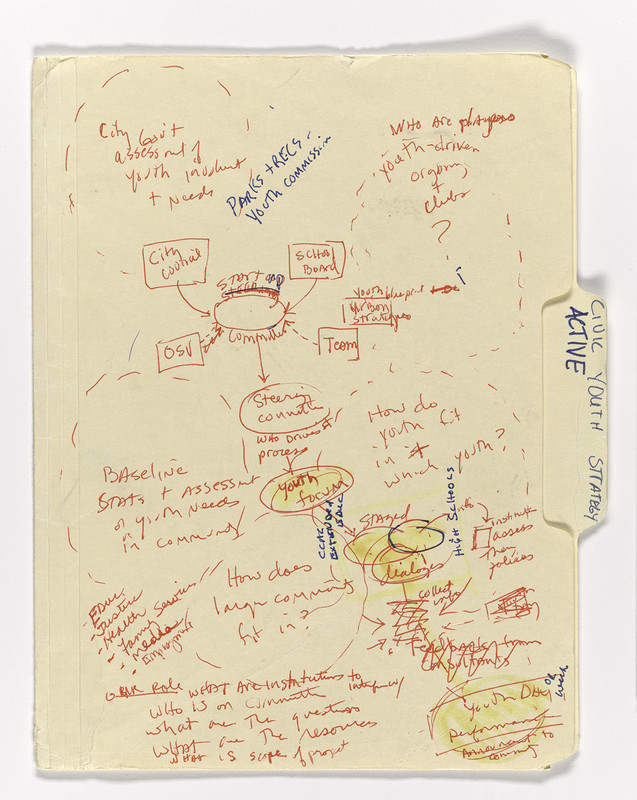 City Gov't
assessment of
youth involvmt
+ needs
PARKS + RECS -
YOUTH COMMISSION
WHO ARE players
youth-driven
ongoing
+
clubs
?
City
council
SCHOOL
BOARD
committee
OSV
Team
Youth blueprint
Urban
strategies
CIVIC YOUTH STRATEGY
ACTIVE
Steering
committee
WHO DRIVES
process
How do
youth fit
in
which youth?
BASELINE
STATS + ASSESSMENT
of youth needs
in community
youth
forum
CCAC
EXTENDED
STAGED
HIGH SCHOOLS
info
dialogues
assess
their
policies
How does
large community
fit in?
collect
info
- Justice
- Health Services
- Family
- Media
- Employment
Feedback from
consultants
OUR Role WHAT ARE INSTITUTIONS to
WHO IS on committee
what are the questions
WHAT are the resources
WHAT IS scope of project
Youth Day
OR
week
performance
Announcement to